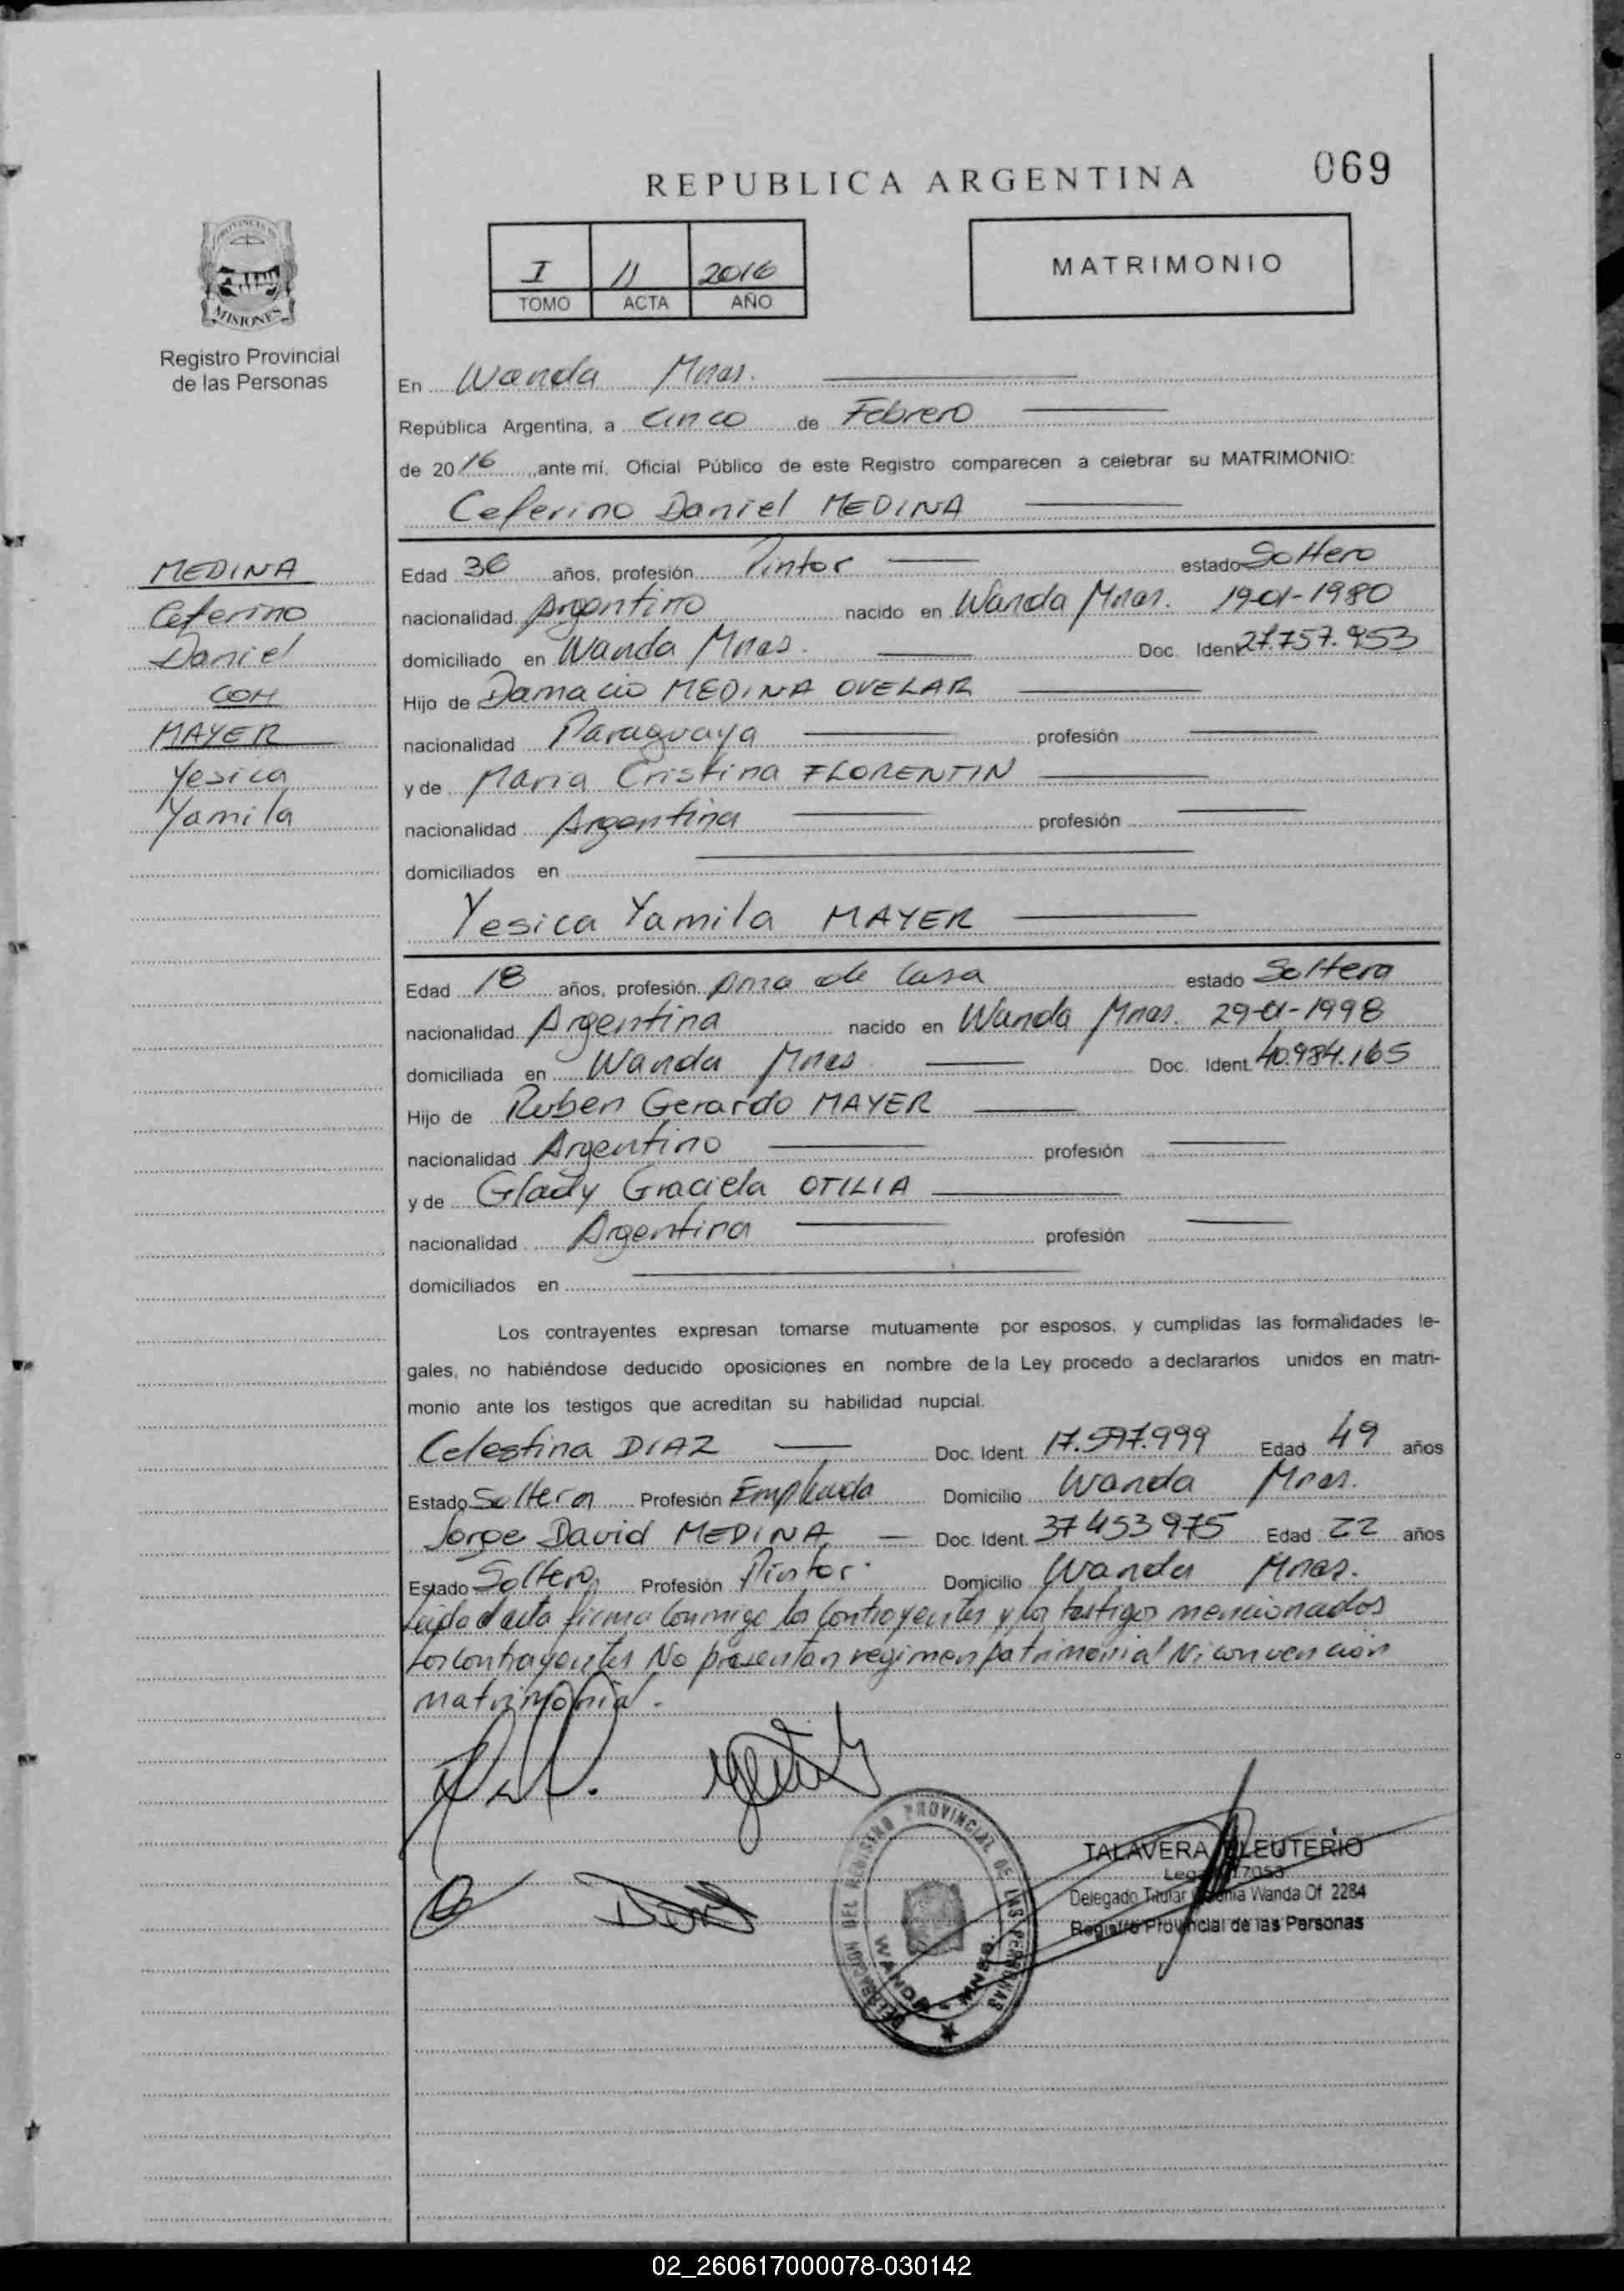 069
REPUBLICA ARGENTINA
I 11 2016
TOMO ACTA AÑO
MATRIMONIO
MISIONES
Registro Provincial
de las Personas
En Wanda Mnes.
República Argentina, a cinco de Febrero
de 2016, ante mí, Oficial Público de este Registro comparecen a celebrar su MATRIMONIO:
Ceferino Daniel MEDINA
MEDINA
Ceferino
Daniel
COM
MAYER
Yesica
Yamila
Edad 36 años, profesión Pintor estado Soltero
nacionalidad Argentino nacido en Wanda Mnes. 19-01-1980
domiciliado en Wanda Mnes. Doc. Ident 27.757.953
Hijo de Damacio MEDINA OVELAR
nacionalidad Paraguaya profesión
y de Maria Cristina FLORENTIN
nacionalidad Argentina profesión
domiciliados en
Yesica Yamila MAYER
Edad 18 años, profesión Ama de Casa estado Soltera
nacionalidad Argentina nacido en Wanda Mnes. 29-01-1998
domiciliada en Wanda Mnes Doc. Ident. 40.984.165
Hijo de Ruben Gerardo MAYER
nacionalidad Argentino profesión
y de Glady Graciela OTILIA
nacionalidad Argentina profesión
domiciliados en
Los contrayentes expresan tomarse mutuamente por esposos, y cumplidas las formalidades le-
gales, no habiéndose deducido oposiciones en nombre de la Ley procedo a declararlos unidos en matri-
monio ante los testigos que acreditan su habilidad nupcial.
Celestina DIAZ Doc. Ident. 17.597.999 Edad 49 años
Estado Soltera Profesión Empleada Domicilio Wanda Mnes.
Jorge David MEDINA Doc. Ident. 37453975 Edad 22 años
Estado Soltero Profesión Pintor. Domicilio Wanda Mnes.
Leida el acta firma conmigo los contrayentes y los testigos mencionados
Los contrayentes No presentan regimen patrimonial Ni convención
matrimonial.
DELEGACION DEL REGISTRO PROVINCIAL DE LAS PERSONAS
WANDA - MNES.
TALAVERA ELEUTERIO
Delegado Titular Wanda Of 2284
Registro Provincial de las Personas
02_260617000078-030142